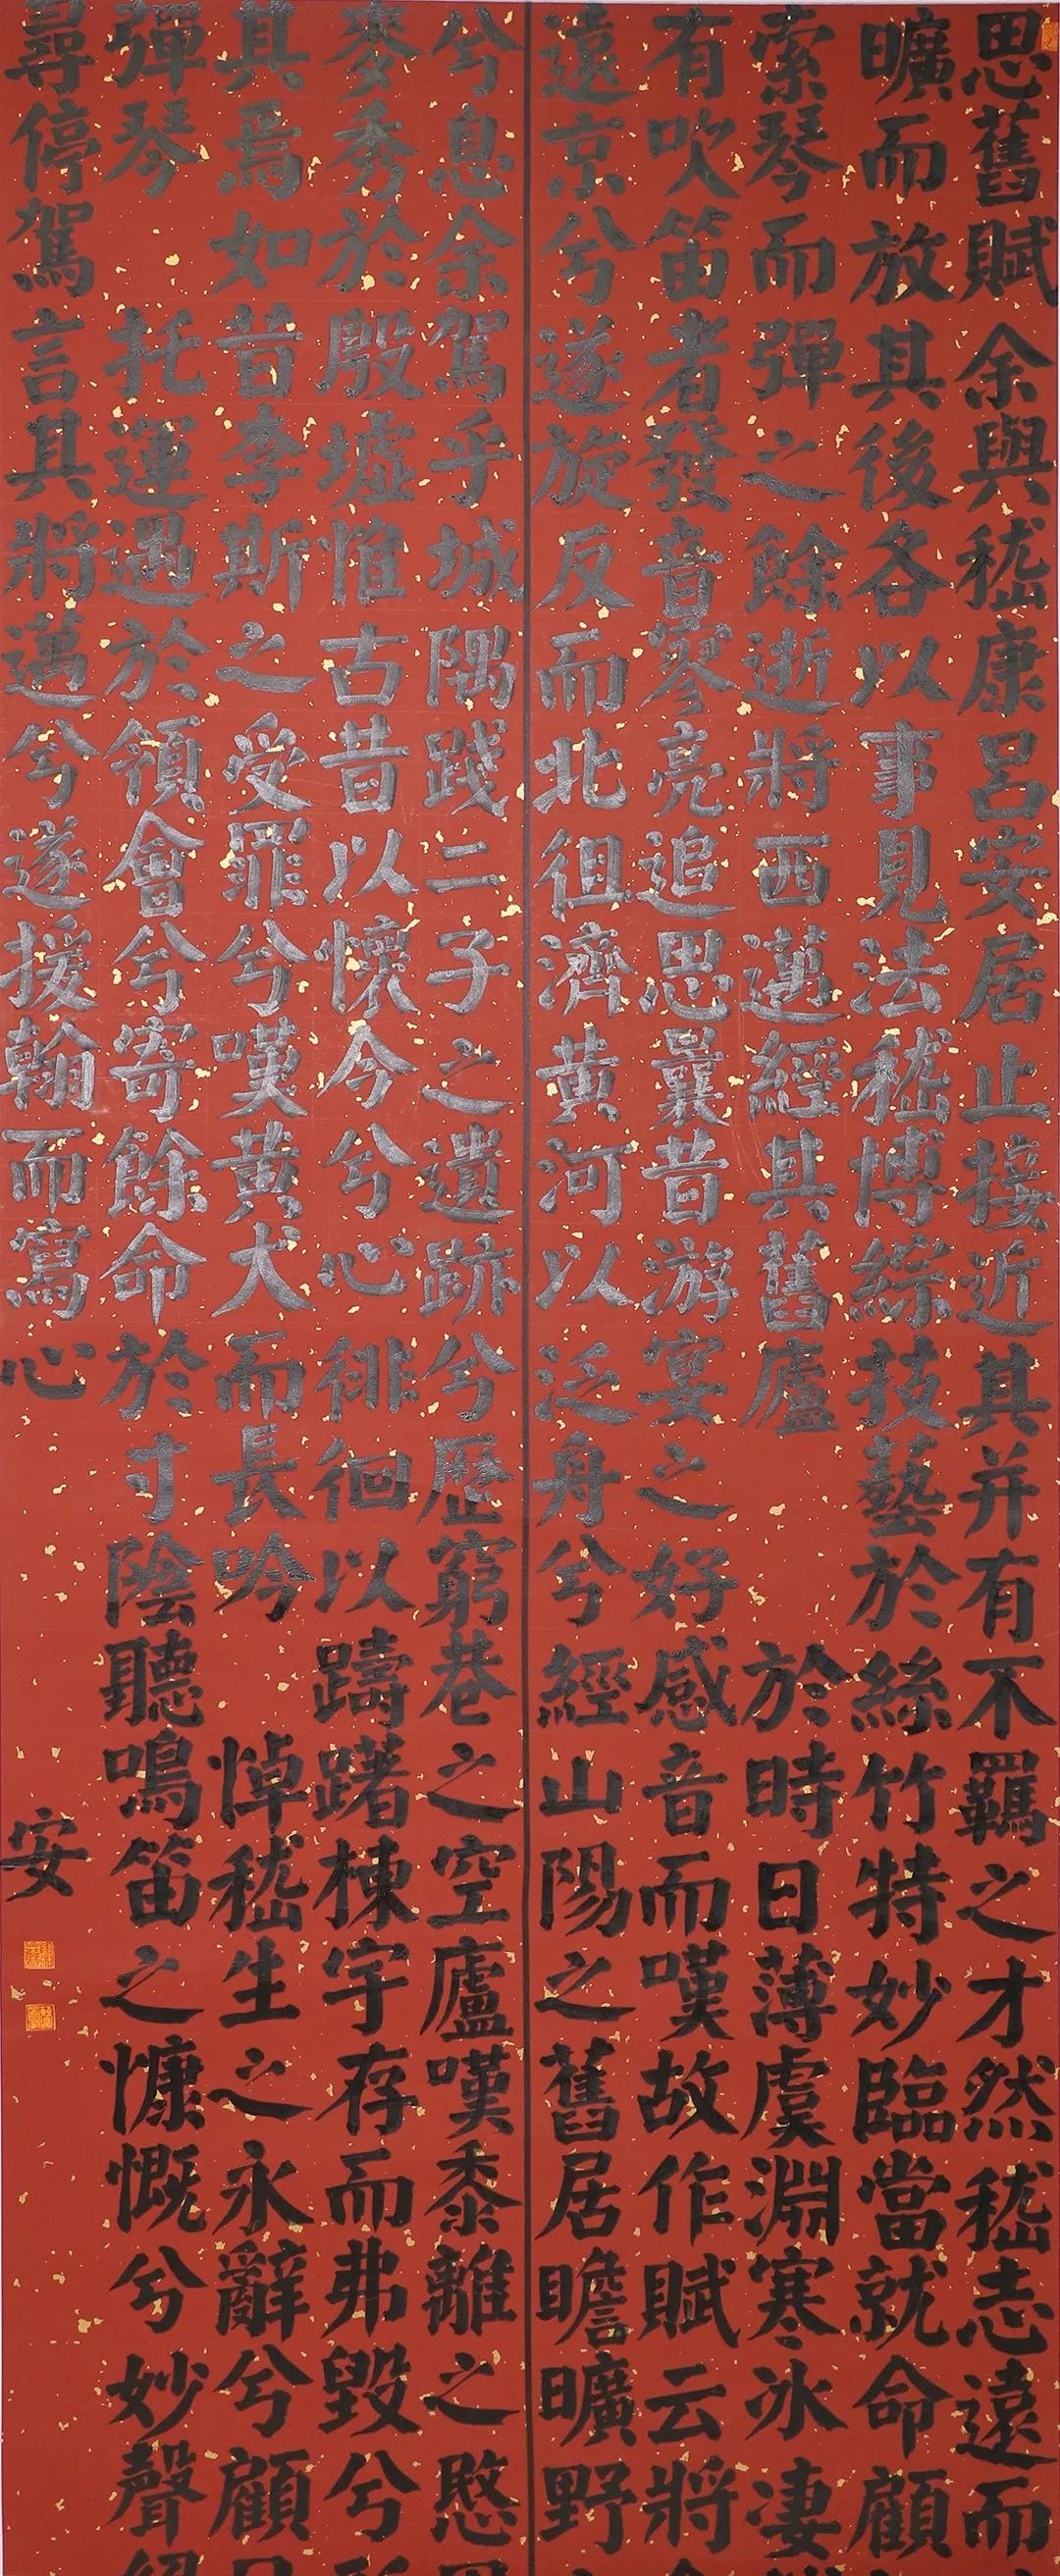 思舊賦余與嵇康呂安居止接近其并有不羈之才然嵇志遠而
曠而放其後各以事見法嵇博綜技藝於絲竹特妙臨當就命顧
索琴而彈之餘逝將西邁經其舊廬於時日薄虞淵寒冰淒
有吹笛者發音寥亮追思曩昔游宴之好感音而嘆故作賦云將
遠京兮遂旋反而北徂濟黄河以泛舟兮經山陽之舊居瞻曠野
兮息余駕乎城隅踐二子之遺跡兮歷窮巷之空廬嘆黍離之愍
麥秀於殷墟惟古昔以懷今兮心徘徊以躊躇棟宇存而弗毀兮
其焉如昔李斯之受罪兮嘆黄犬而長吟悼嵇生之永辭兮顧
彈琴托運遇於領會兮寄餘命於寸陰聽鳴笛之慷慨兮妙聲
尋停駕言其將邁兮遂援翰而寫心
安